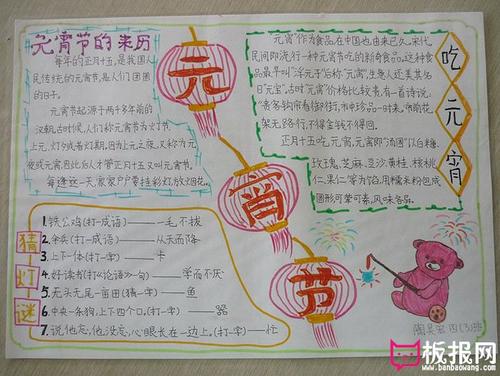 元宵节的来历
每年的正月十五，是我国人
民传统的元宵节，是人们团圆
的日子。
元宵节起源于两千多年前的
汉朝，古时候，人们称元宵节为灯节、
上元、灯夕或者灯期。因为上元之夜，又称为元
夜或元宵，因此后人才管正月十五叫元宵节。
每逢这一天，家家户户要挂彩灯，放烟花。
元
宵
节
吃
元
宵
元宵"作为食品，在中国也由来已久。宋代，
民间即流行一种元宵节吃的新奇食品。这种食
品，最早叫"浮元子"后称"元宵"，生意人还美其名
曰"元宝"。古时"元宵"价格比较贵，有一首诗说：
"贵客钩帘看御街，市中珍品一时来。帘前花
架无路行，不得金钱不得回。
正月十五吃元宵，元宵即"汤圆"以白糖、
玫瑰、芝麻、豆沙、黄桂、核桃
仁、果仁、枣等为馅，用糯米粉包成
圆形，可荤可素，风味各异。
猜
灯
谜
1.铁公鸡(打一成语)——一毛不拔
2.伞兵(打一成语)——从天而降
3.上下一体(打一字)——卡
4.好读书(打《论语》一句)——学而不厌
5.无头无尾一亩田(猜一字)——鱼
6.中央一条狗，上下四个口，(打一字)——器
7.说他忘，他没忘，心眼长在一边上，(打一字)——忙
四(3)班
板报网
www.banbaowang.com